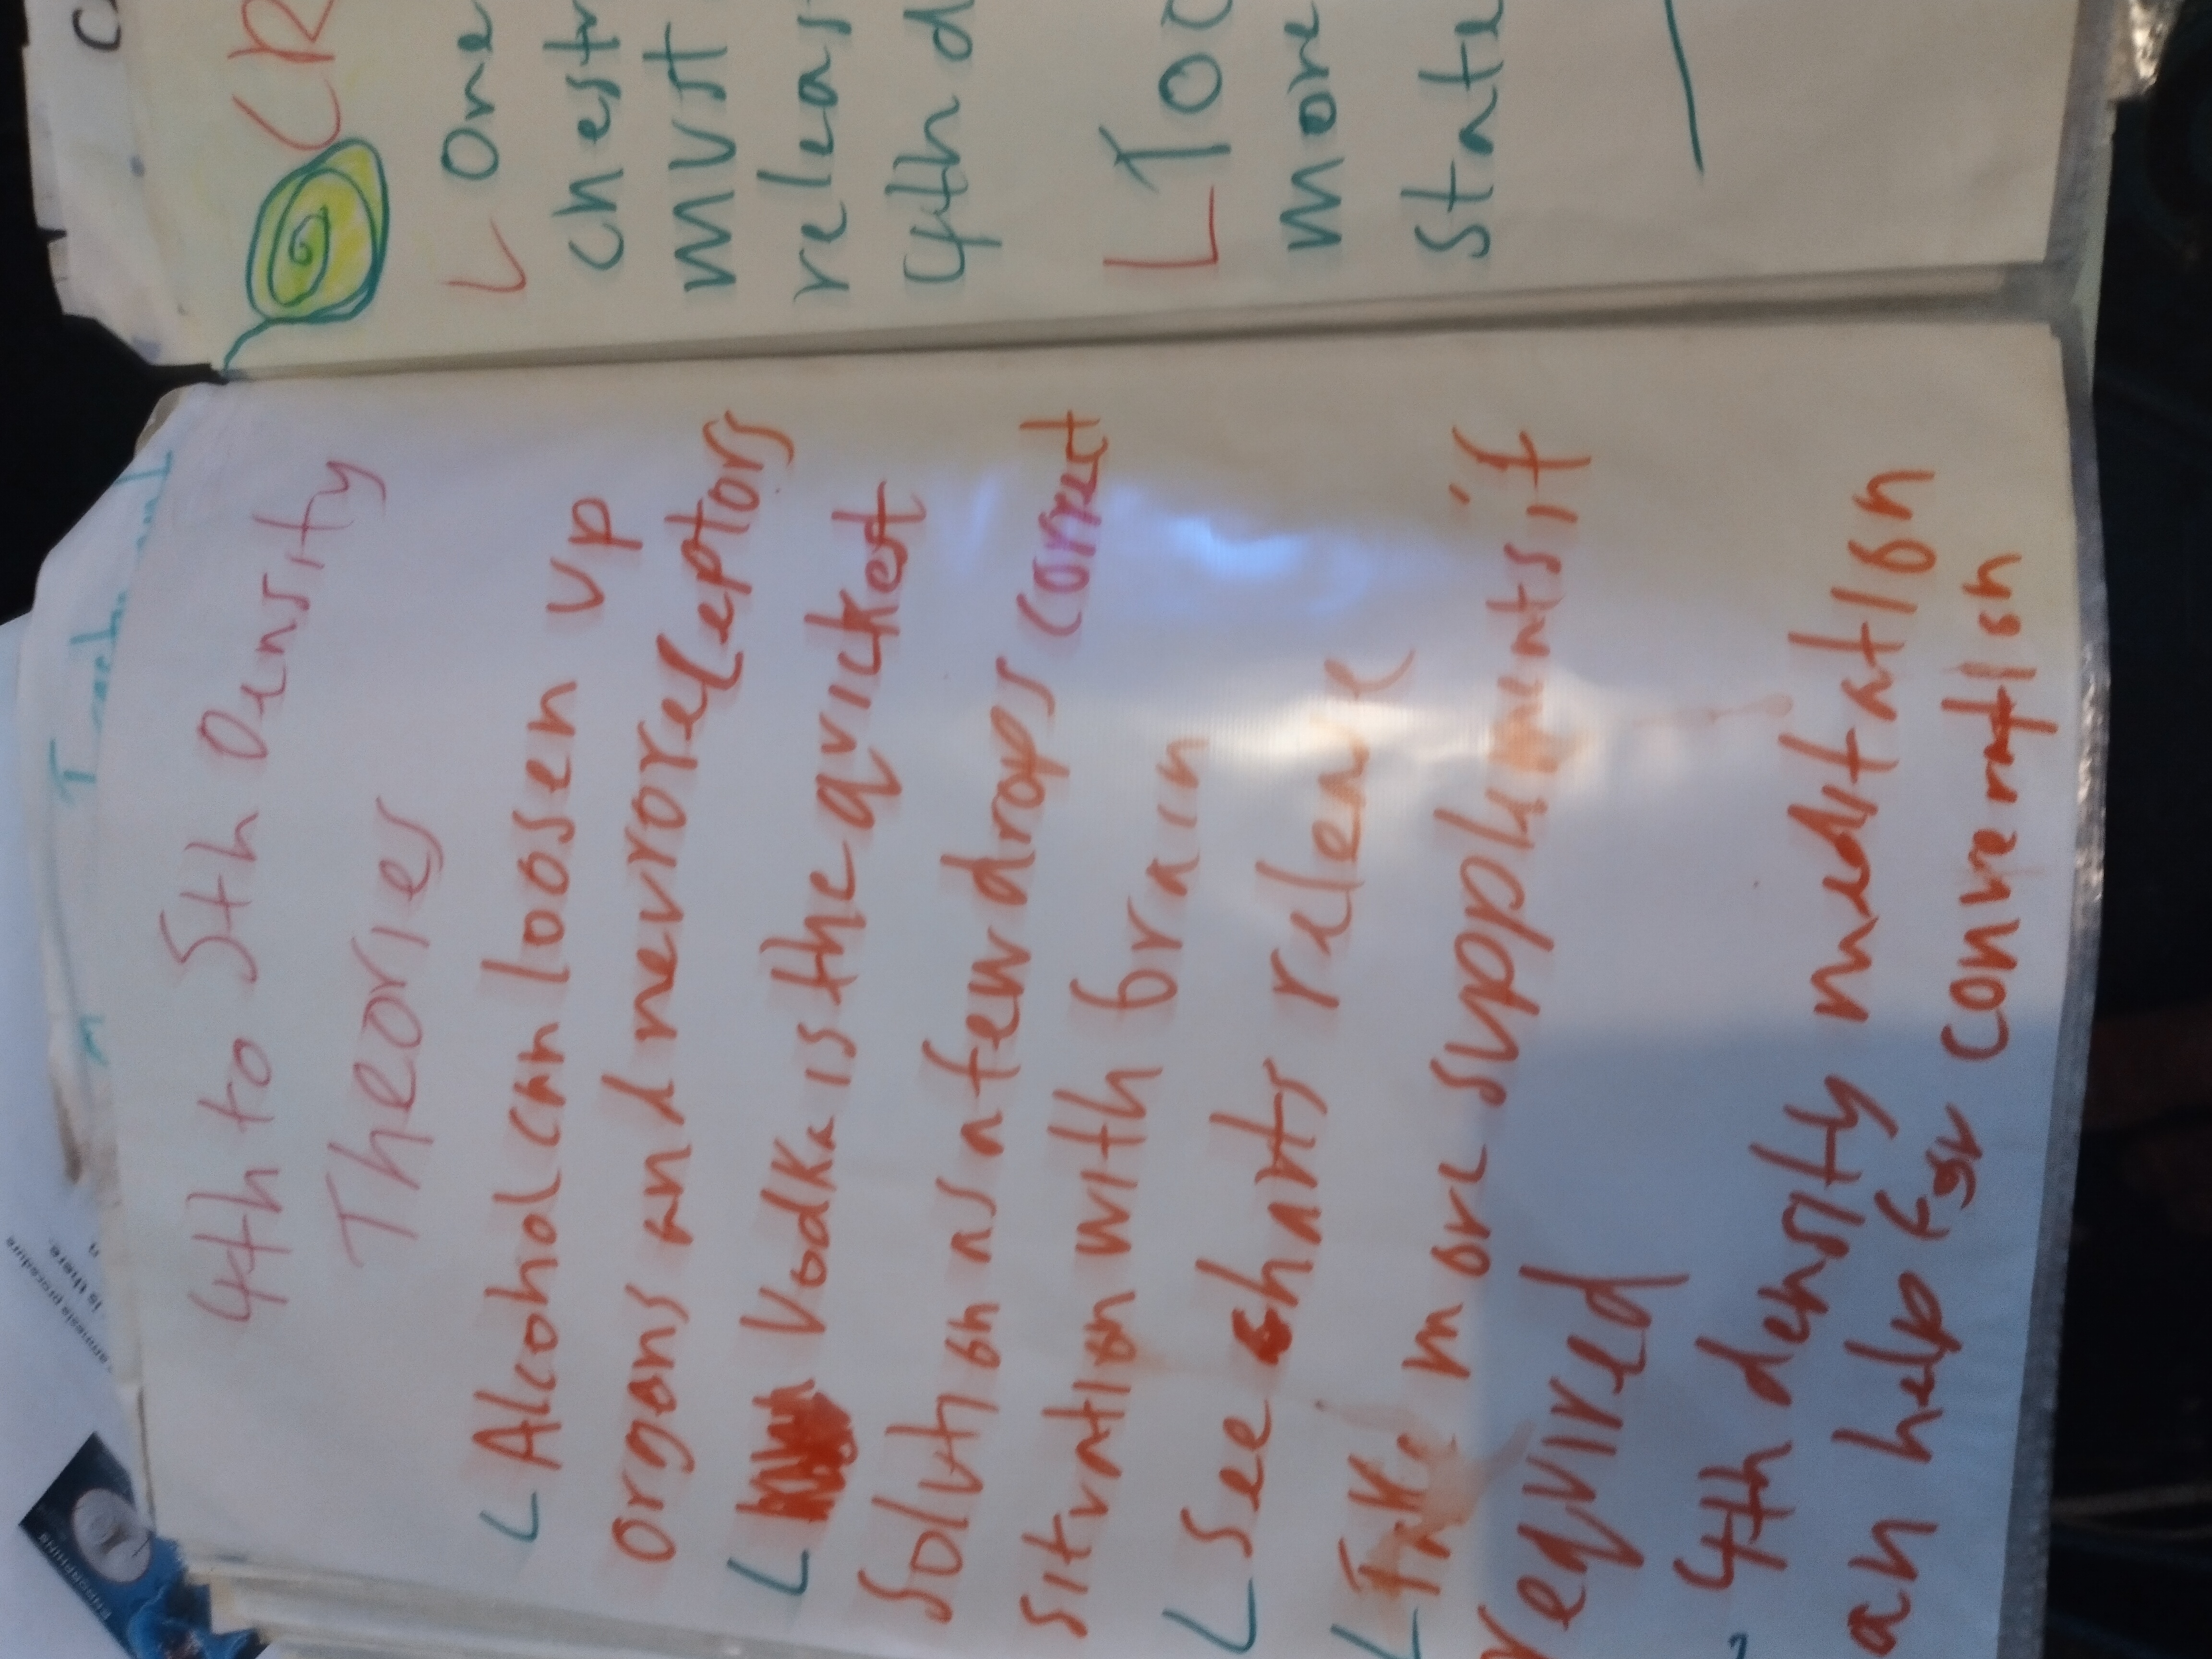 4th to 5th Density
Theories
Alcohol can loosen up
organs and neuroreceptors
Vodka is the quickest
solution as a few drops correct
situation with brain
See charts relene
Take more supplements if
required
4th density meditation
an help for conversation
CR
One
chest
must
releas
4th d
Too
more
State
ENDORPHINS
is there.
amnesis procedure